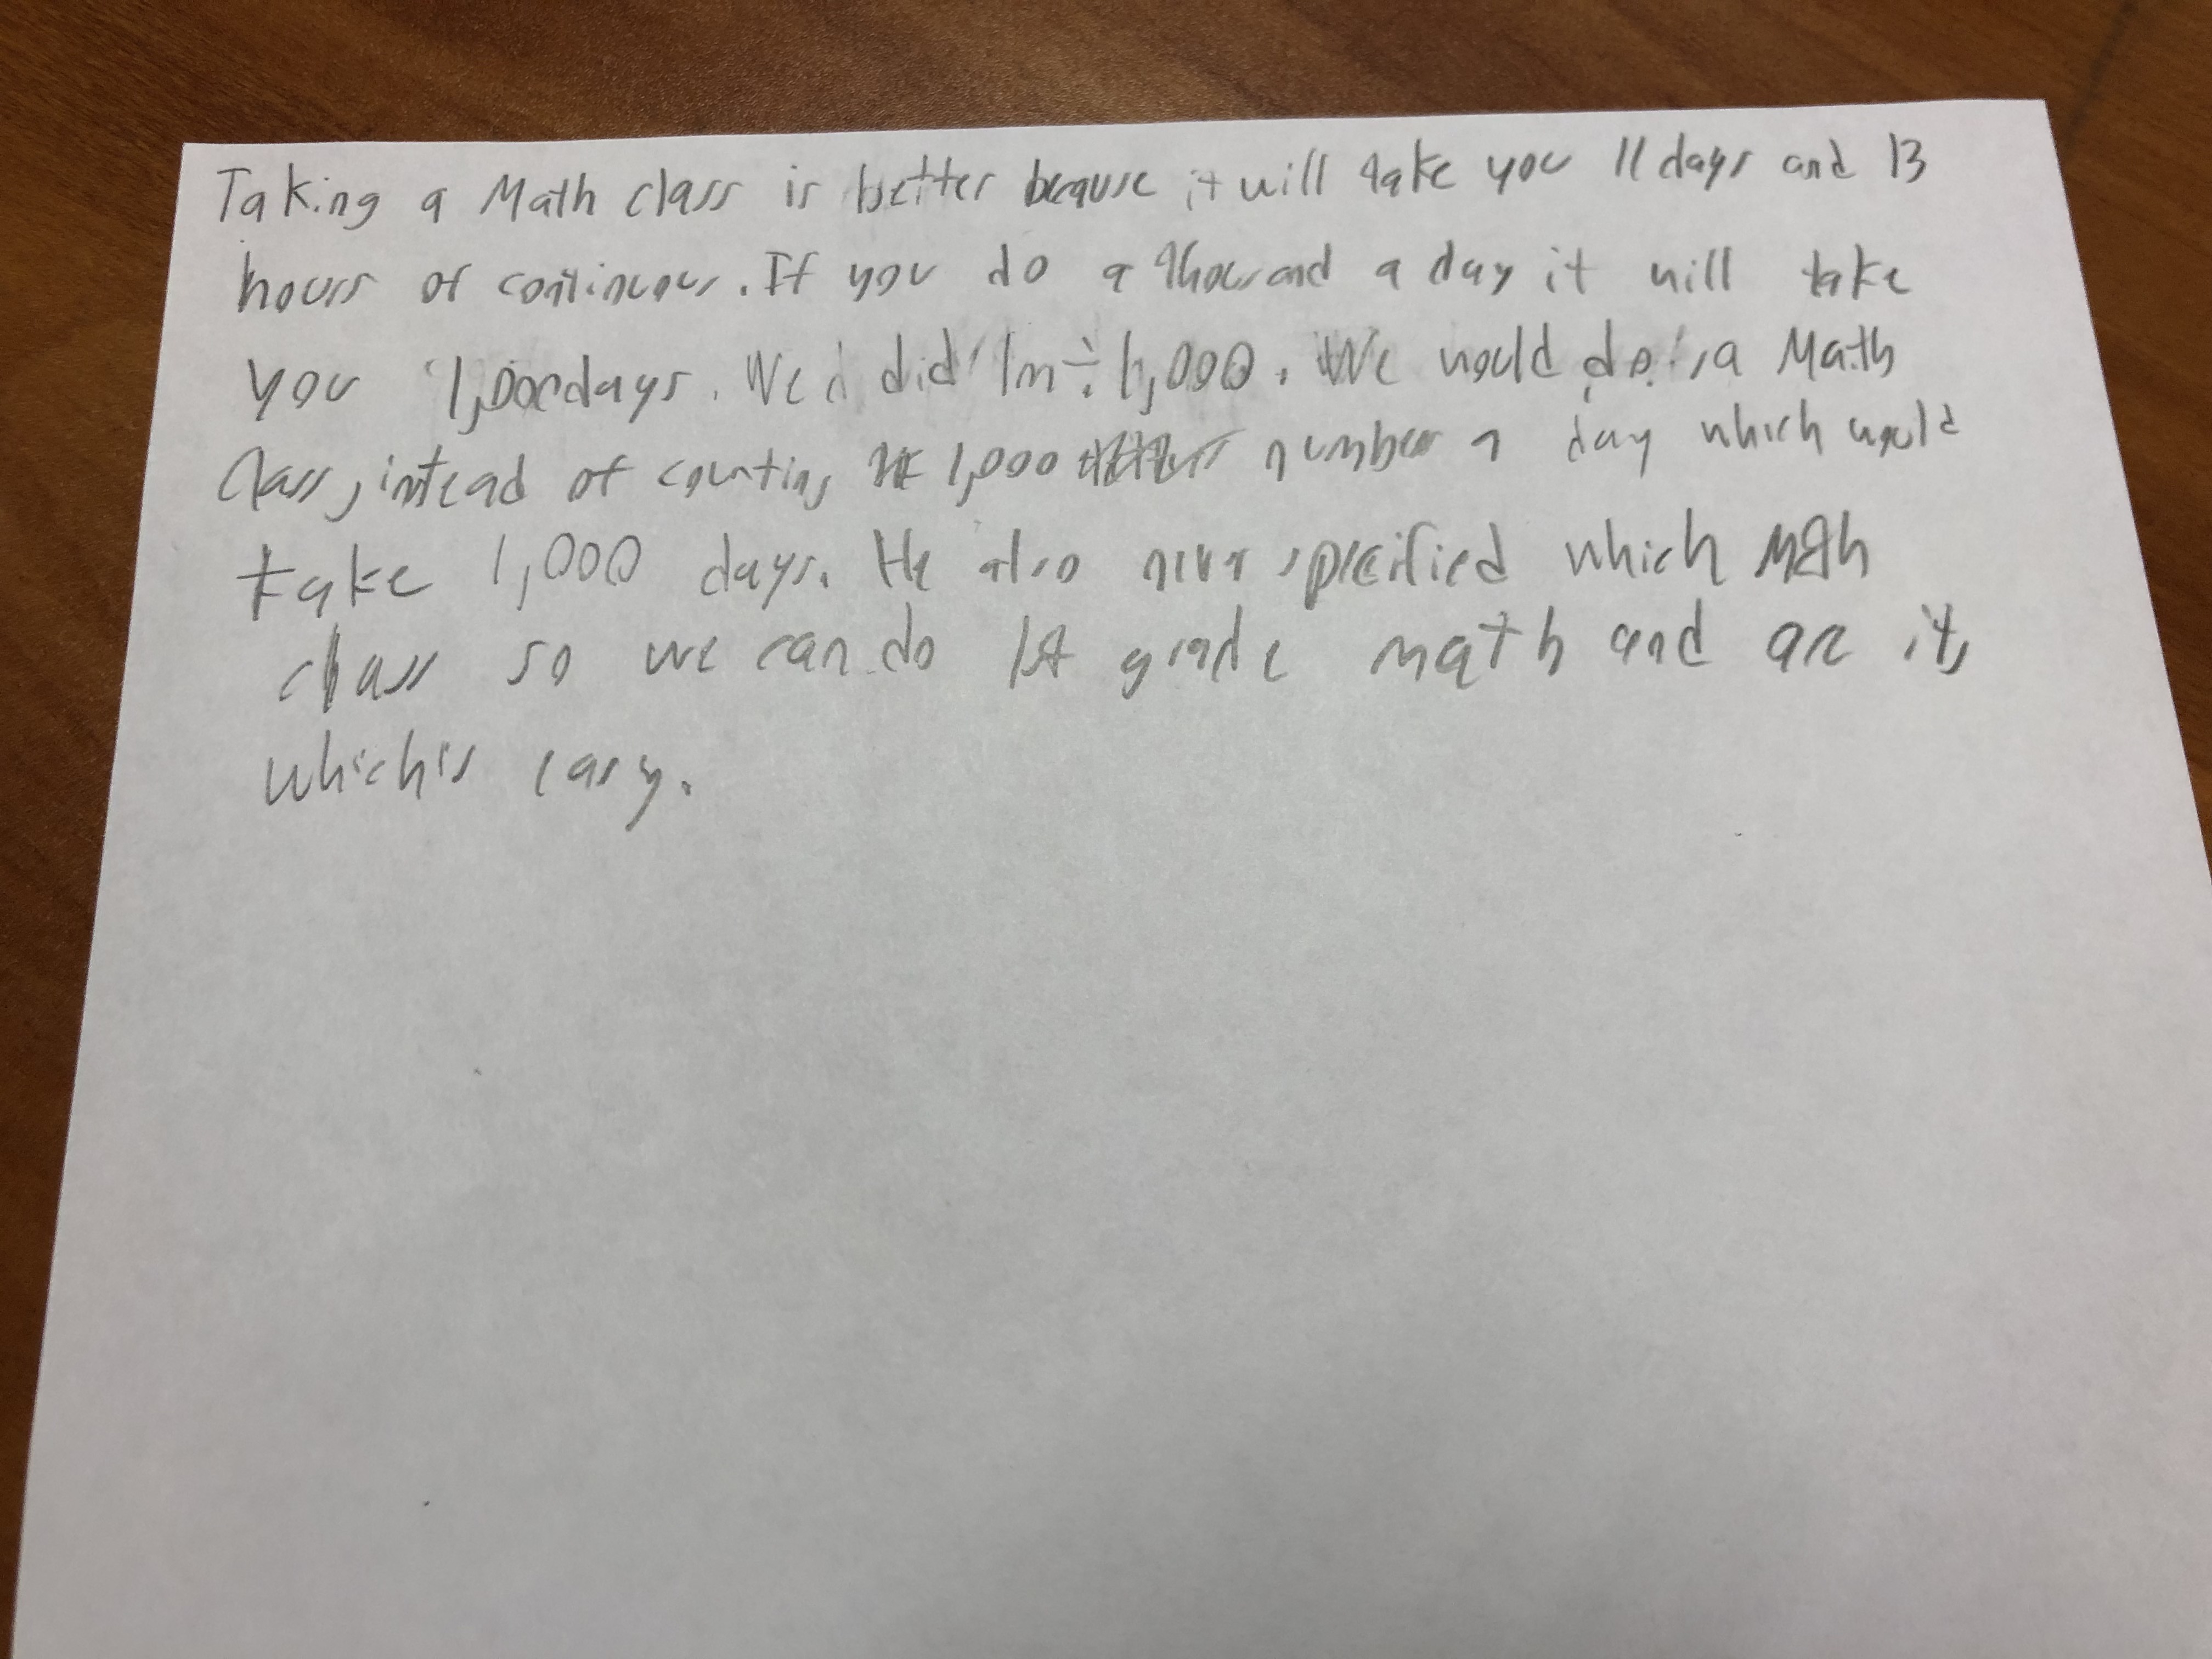 Taking a Math class is better because it will take you 11 days and 13
hours of continous. If you do a thousand a day it will take
you 1,000 days. We did 1m÷1,000. We would do a Math
class, intead of counting 1,000 number a day which would
take 1,000 days. He also niver spleificd which Math
class so we can do 1st grade math and ace it,
which is easy.